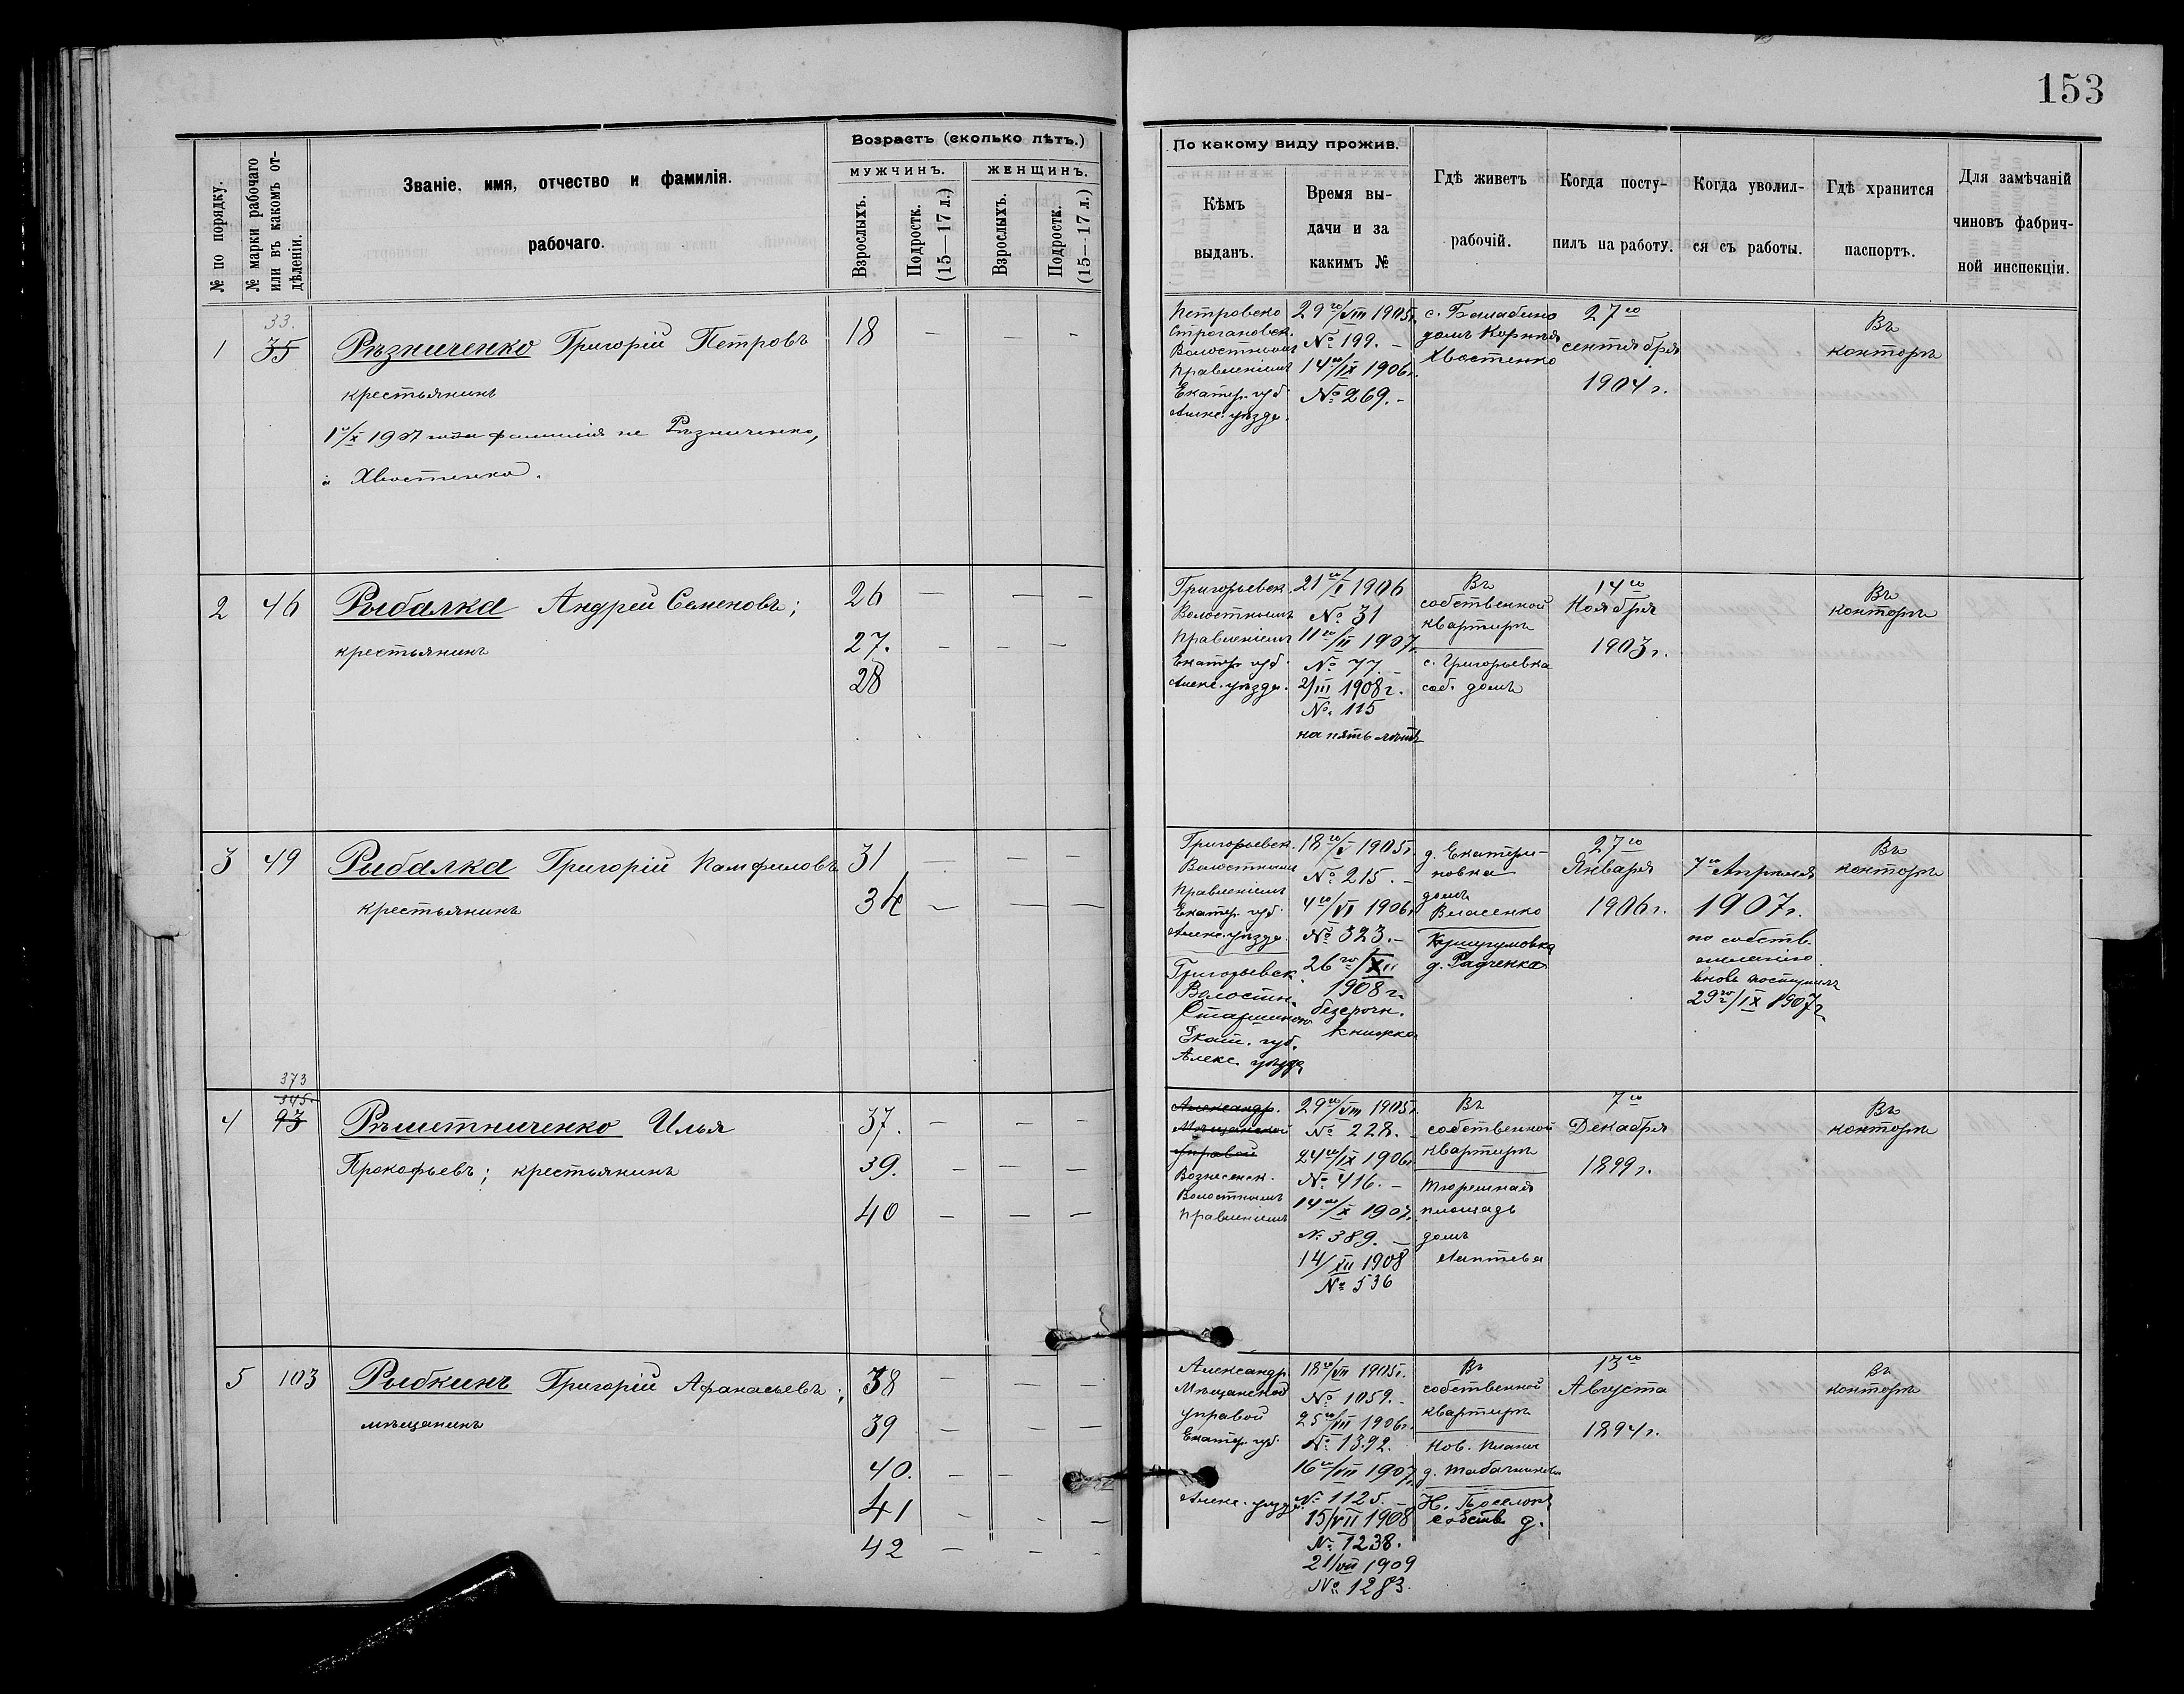 153
№ по порядку.
№ марки рабочаго
или въ какомъ от-
дѣленіи.
Званіе, имя, отчество и фамилія.
рабочаго.
Возрастъ (сколько лѣтъ.)
мужчинъ.
женщинъ.
Взрослыхъ.
Подростк.
(15—17 л.)
Взрослыхъ.
Подростк.
(15—17 л.)
По какому виду прожив.
Кѣмъ
выданъ.
Время вы-
дачи и за
какимъ №
Гдѣ живетъ
рабочій.
Когда посту-
пилъ на работу.
Когда уволил-
ся съ работы.
Гдѣ хранится
паспортъ.
Для замѣчаній
чиновъ фабрич-
ной инспекціи.
1
33.
35
Рѣзниченко Григорій Петровъ
крестьянинъ
1го/X 1907 года фамилія не Рѣзниченко,
а Хвостенко.
18 — — —
Петровско
Строгановск.
Волостнымъ
Правленіемъ
Екатер. губ.
Алекс. уѣзда.
29го/VIII 1905г.
№ 199. —
14го/IX 1906г.
№ 269. —
с. Балабино
домъ Корнѣя
Хвостенко
27го
сентября
1904 г.
Въ
конторѣ
2
46
Рыбалка Андрей Семеновъ;
крестьянинъ
26 — — —
27. — — —
28
Григорьевск.
Волостнымъ
Правленіемъ
Екатер. губ.
Алекс. уѣзда.
21го/I 1906
№ 31
11го/II 1907г.
№ 77. —
2/III 1908 г.
№ 115
на пять лѣтъ
Въ
собственной
квартирѣ
с. Григорьевка
соб. домъ
14го
Ноября
1903 г.
Въ
конторѣ
3
49
Рыбалка Григорій Памфиловъ
крестьянинъ
31 — — —
34 — — —
Григорьевск.
Волостнымъ
Правленіемъ
Екатер. губ.
Алекс. уѣзда.
Григорьевск.
Волостн.
Старшиною
Екат. губ.
Алекс. уѣзда
18го/V 1905г.
№ 215. —
4го/VI 1906г.
№ 323. —
26го/XII
1908 г.
безсрочн.
книжка
д. Екатери-
новка
домъ
Власенко
Кушугумовка
д. Радченка
27го
Января
1906 г.
7го Апрѣля
1907 г.
по собств.
желанію.
вновь поступилъ
29го/IX 1907 г.
Въ
конторѣ
4
373
345.
93
Рѣшетниченко Илья
Прокофьевъ; крестьянинъ
37. — — —
39. — — —
40 — — —
Александр.
Мѣщанской
Управой
Вознесенск.
Волостнымъ
Правленіемъ
29го/VIII 1905г.
№ 228. —
24го/IX 1906г.
№ 416. —
14го/X 1907г.
№ 389. —
14/XII 1908
№ 536
Въ
собственной
квартирѣ
Тюремная
площадь
домъ
Лаптева
7го
Декабря
1899 г.
Въ
конторѣ
5
103
Рыбкинъ Григорій Афанасьевъ;
мѣщанинъ
38 — — —
39 — — —
40. — — —
41 — — —
42 — — —
Александр.
Мѣщанской
Управой
Екатер. губ.
Алекс. уѣзда.
18го/VII 1905г.
№ 1059. —
25го/VII 1906г.
№ 1392.
16го/VII 1907г.
№ 1125. —
15/VII 1908
№ 1238.
21/VII 1909
№ 1283.
Въ
собственной
квартирѣ
Нов. Планъ
д. Табачникова
Н. Поселокъ
собств. д.
13го
Августа
1894 г.
Въ
конторѣ